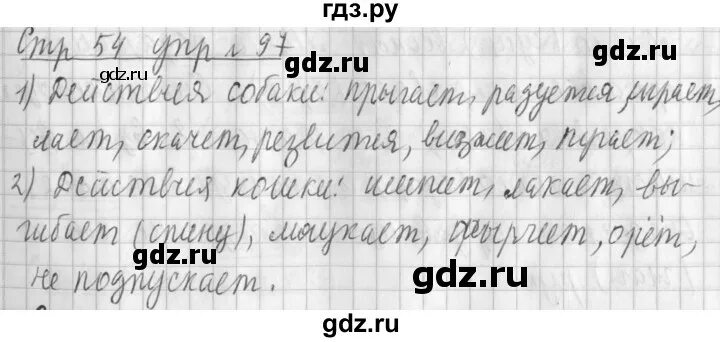 гдз.ру
Стр 54 упр № 97
1) Действия собаки: прыгает, радуется, играет,
лает, скачет, резвится, визжит, играет;
2) Действия кошки: шипит, лакает, вы-
гибает (спину), мяукает, фырчит, орёт,
не подпускает.
gdz.ru
gdz.ru
gdz.ru
gdz.ru
gdz.ru